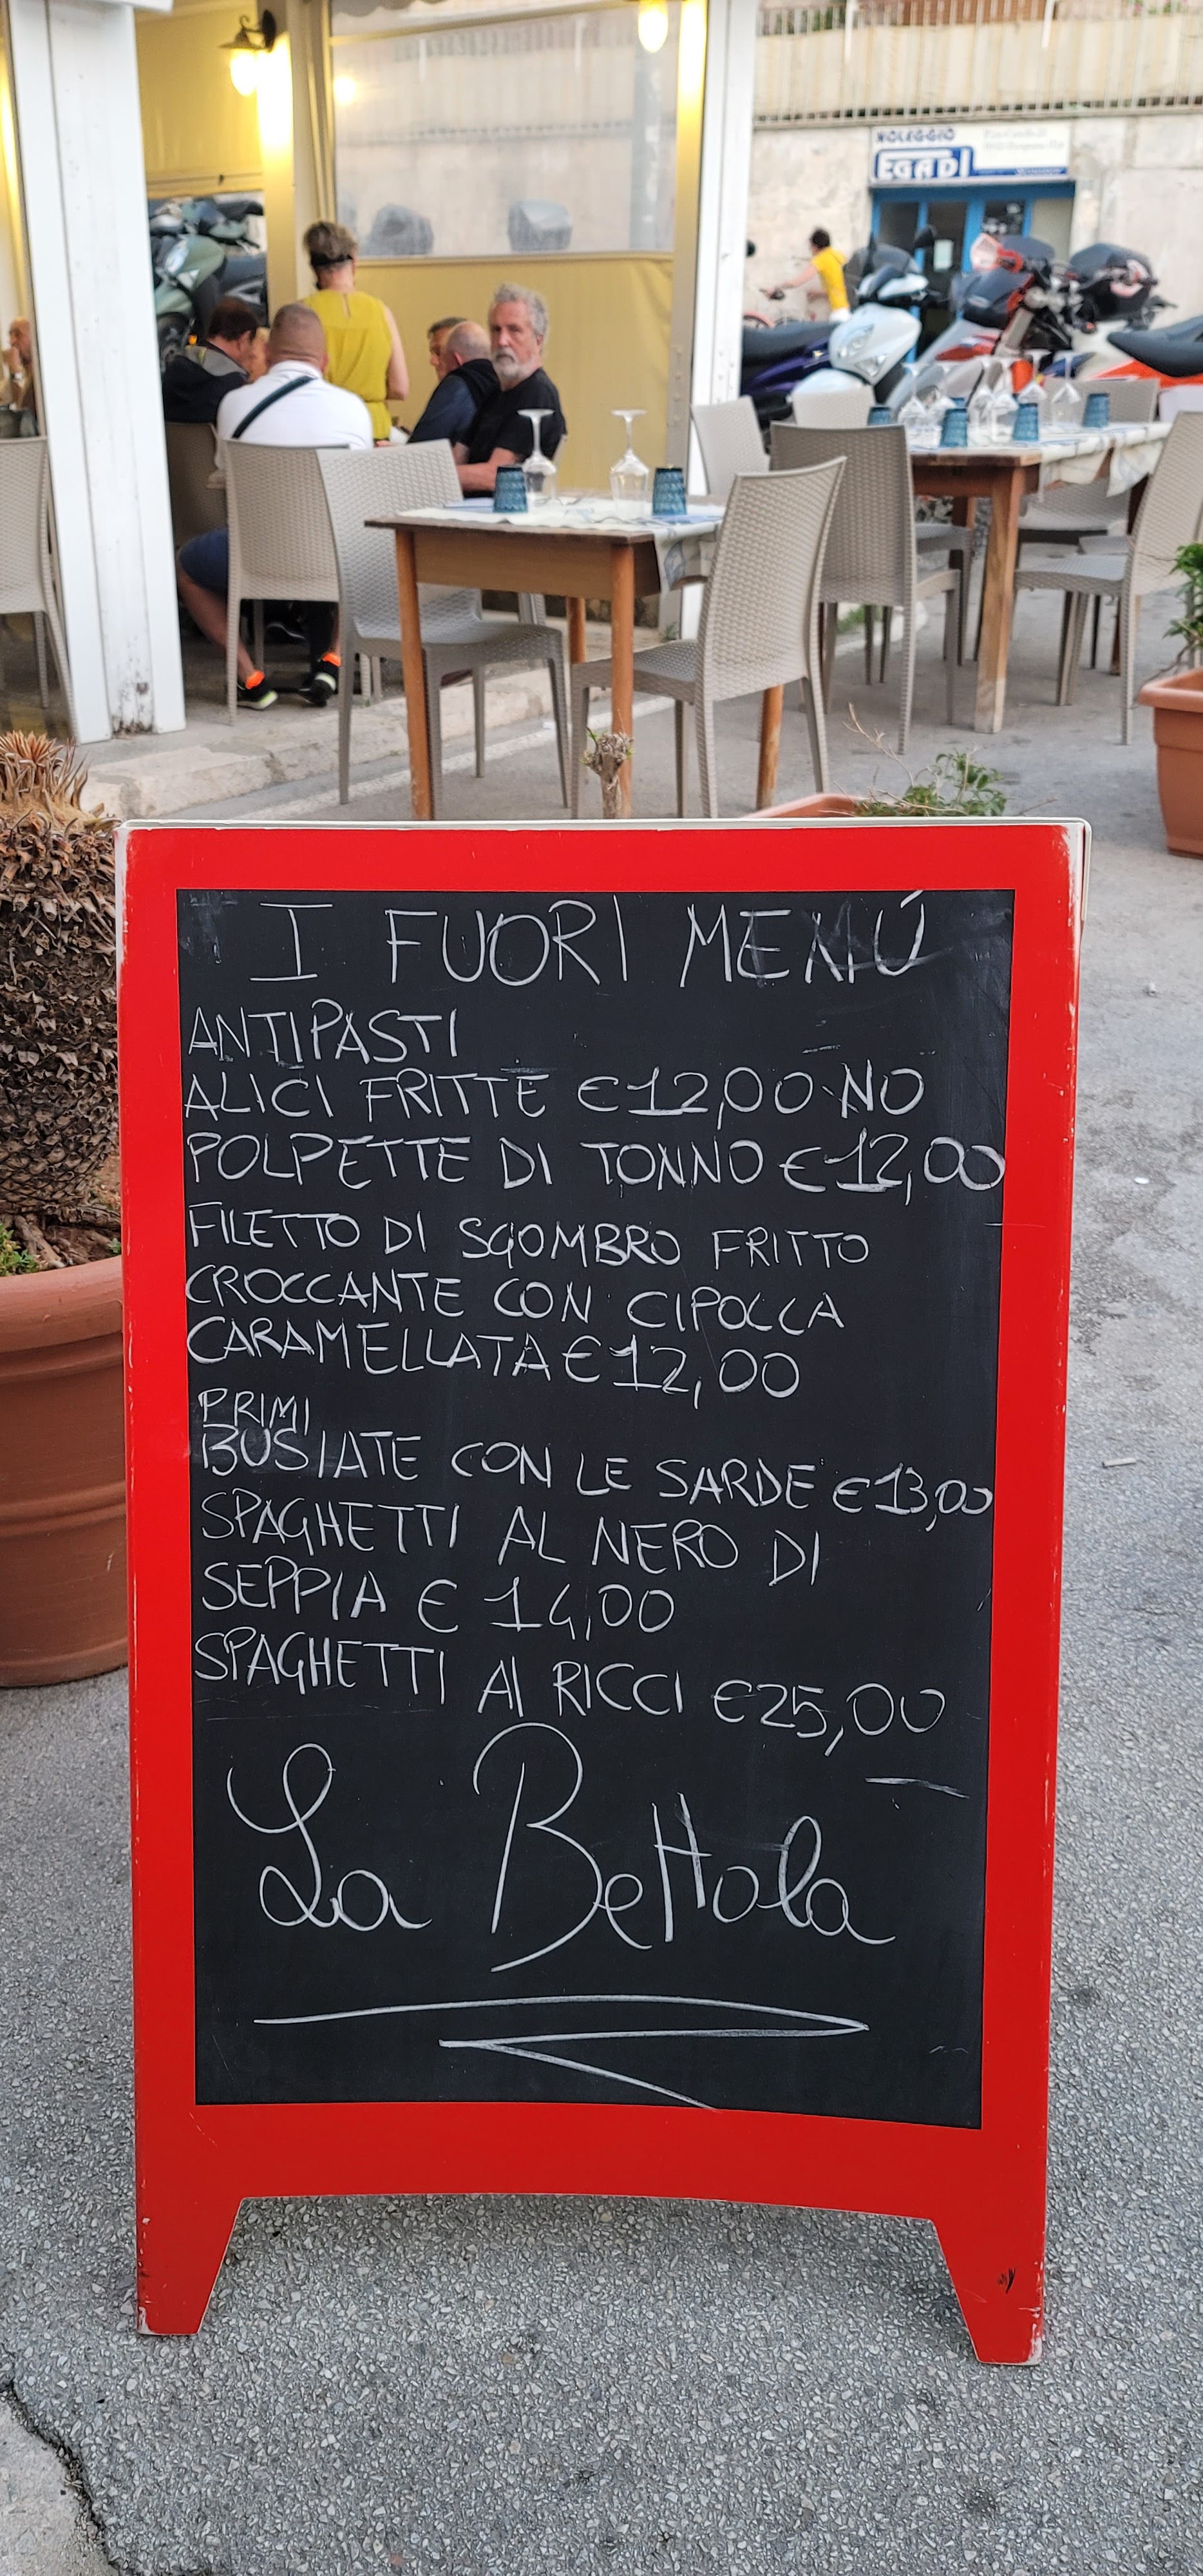 NOLEGGIO
EGADI
I FUORI MENÚ
ANTIPASTI
ALICI FRITTE €12,00 NO
POLPETTE DI TONNO €12,00
FILETTO DI SGOMBRO FRITTO
CROCCANTE CON CIPOLLA
CARAMELLATA €12,00
PRIMI
BUSIATE CON LE SARDE €13,00
SPAGHETTI AL NERO DI
SEPPIA € 14,00
SPAGHETTI AI RICCI €25,00
La Bettola